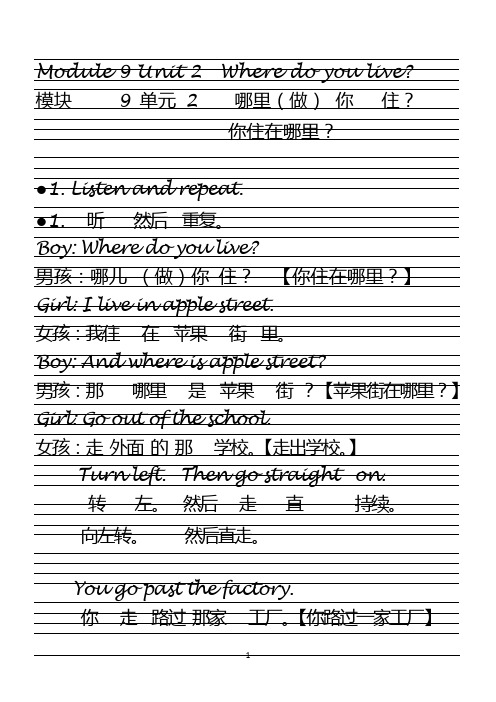 Module 9 Unit 2 Where do you live?
模块 9 单元 2 哪里（做） 你 住？
你住在哪里？
●1. Listen and repeat.
●1. 听 然后 重复。
Boy: Where do you live?
男孩：哪儿 （做）你 住？ 【你住在哪里？】
Girl: I live in apple street.
女孩：我住 在 苹果 街 里。
Boy: And where is apple street?
男孩：那 哪里 是 苹果 街 ？【苹果街在哪里？】
Girl: Go out of the school.
女孩：走 外面 的 那 学校。【走出学校。】
Turn left. Then go straight on.
转 左。 然后 走 直 持续。
向左转。 然后直走。
You go past the factory.
你 走 路过 那家 工厂。【你路过一家工厂】
1